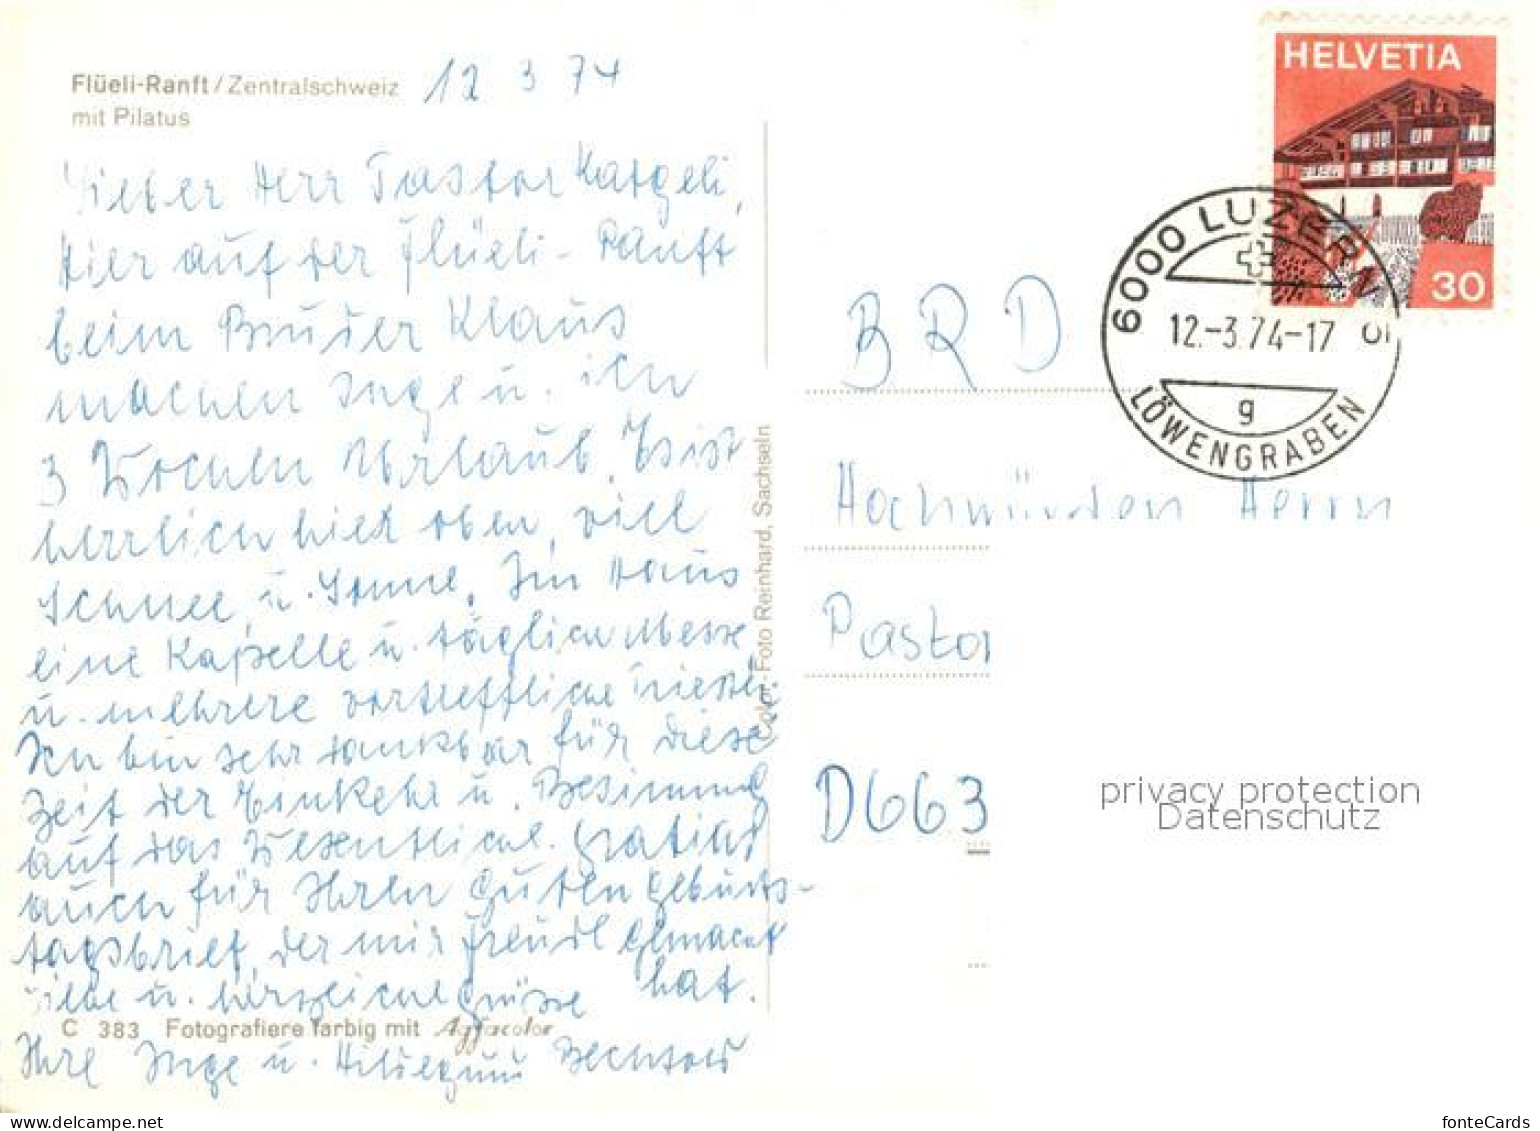 Flüeli-Ranft / Zentralschweiz
mit Pilatus
12 3 74
Lieber Herr Pastor
Hier auf der Flüeli-Ranft
beim Bruder Klaus
machen Inge u. ich
3 Wochen Urlaub. Es ist
herrlich hier oben, viel
Schnee u. Sonne. Im Haus
eine Kapelle u. täglich Messe
u. mehrere vortreffliche Priester.
Ich bin sehr dankbar für diese
Zeit der Einkehr u. Besinnung
auf das Wesentliche.
auch für Ihren guten Geburts-
tagsbrief, der mir Freude gemacht
hat.
Liebe u. herzliche Grüsse
C 383 Fotografiere farbig mit Agfacolor
Ihre Inge u. Hildegund
Color-Foto Reinhard, Sachseln
HELVETIA
30
6000 LUZERN 5
12.-3.74-17
g
LÖWENGRABEN
BRD
Hochwürden Herrn
Pastor
D663
privacy protection
Datenschutz
www.delcampe.net
fonteCards